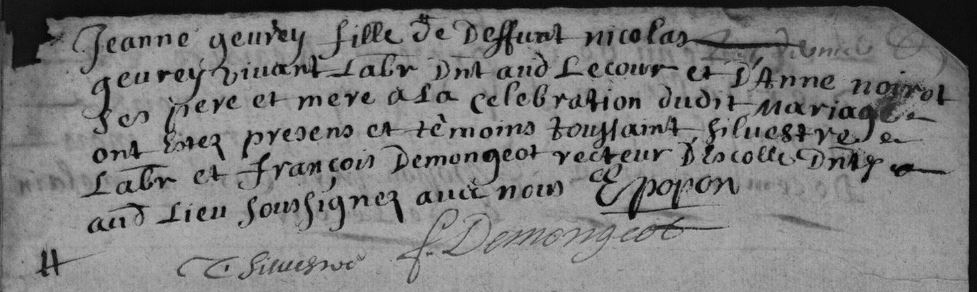 Jeanne gevrey fille de Deffunt nicolas
gevrey vivant Labr Dnt aud Lecour et D'Anne noirot
ses pere et mere a La Celebration dudit Mariage
ont estez presens et témoins toussaint silvestre
Labr et françois Demongeot recteur D'Escolle Dnt
aud Lieu soussignez avec nous E popon
silvestre f. Demongeot